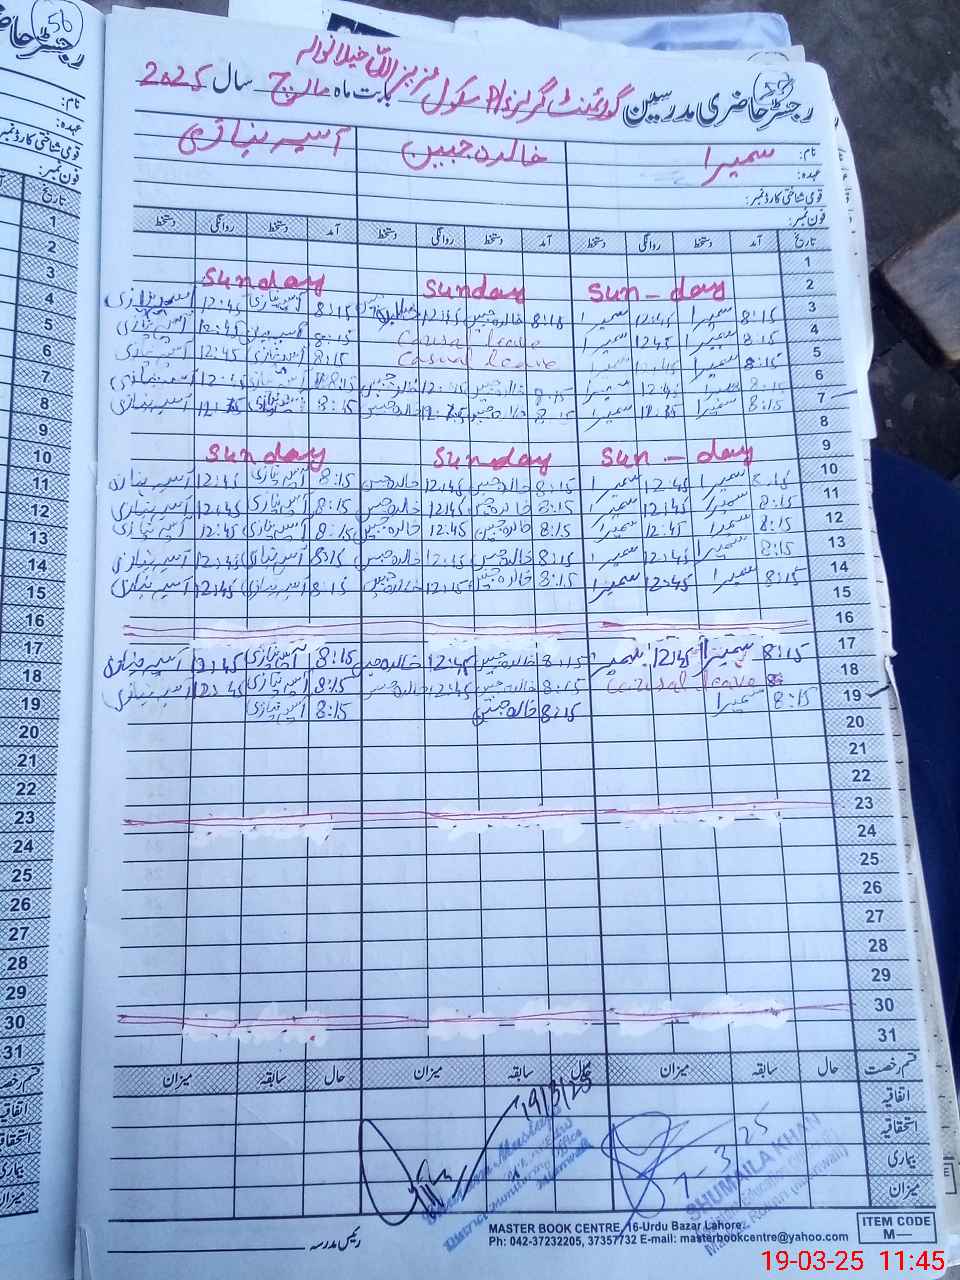 56
رجسٹر حاضری مدرسین گورنمنٹ گرلز P/ سکول بابت ماہ مارچ سال 2025
نام: سمیرا خالدہ جبین آسیہ نیازی
عہدہ:
قومی شناختی کارڈ نمبر:
فون نمبر:
تاریخ آمد دستخط روانگی دستخط آمد دستخط روانگی دستخط آمد دستخط روانگی دستخط
1
2 sun-day sunday sunday
3 8:15 سمیرا 12:45 سمیرا 8:15 خالدہ جبین 12:45 8:15 آسیہ نیازی 12:45 آسیہ نیازی
4 8:15 سمیرا 1245 سمیرا Casual leave 8:15 12:45
5 8:15 سمیرا 12:45 سمیرا Casual leave 8:15 آسیہ نیازی 12:45 آسیہ نیازی
6 8:15 سمیرا 12:45 سمیرا 8:15 خالدہ جبین 12:45 خالدہ جبین 8:15 آسیہ نیازی 12:45 آسیہ نیازی
7 8:15 سمیرا سمیرا 8:15 خالدہ جبین خالدہ جبین 8:15 آسیہ نیازی آسیہ نیازی
8
9 sun-day sunday sunday
10 8:15 سمیرا 12:45 سمیرا 8:15 خالدہ جبین 12:45 خالدہ جبین 8:15 آسیہ نیازی 12:45 آسیہ نیازی
11 8:15 سمیرا 12:45 سمیرا 8:15 خالدہ جبین 1245 خالدہ جبین 8:15 آسیہ نیازی 12:45 آسیہ نیازی
12 8:15 سمیرا 12:45 سمیرا 8:15 خالدہ جبین 12:45 خالدہ جبین 8:15 آسیہ نیازی 12:45 آسیہ نیازی
13 8:15 سمیرا 12:45 سمیرا 8:15 خالدہ جبین 12:45 خالدہ جبین 8:15 آسیہ نیازی 12:45 آسیہ نیازی
14 8:15 سمیرا 12:45 سمیرا 8:15 خالدہ جبین خالدہ جبین 8:15 آسیہ نیازی 12:45 آسیہ نیازی
15
16
17 8:15 سمیرا 12:45 سمیرا 8:15 خالدہ جبین 12:45 خالدہ جبین 8:15 آسیہ نیازی آسیہ نیازی
18 Causal leave 8:15 خالدہ جبین 12:45 خالدہ جبین 8:15 آسیہ نیازی آسیہ نیازی
19 8:15 سمیرا 8:15 خالدہ جبین 8:15 آسیہ نیازی
20
21
22
23
24
25
26
27
28
29
30
31
قسم رخصت حال سابقہ میزان حال سابقہ میزان حال سابقہ میزان
اتفاقیہ
استحقاقیہ
بیماری
میزان
19/3/25
SHUMAILA KHAN
رئیس مدرسہ
MASTER BOOK CENTRE, 16-Urdu Bazar Lahore.
Ph: 042-37232205, 37357732 E-mail: masterbookcentre@yahoo.com
ITEM CODE
M—
19-03-25 11:45
رجسٹر حاضری
نام:
عہدہ:
قومی شناختی کارڈ نمبر:
فون نمبر:
تاریخ
1
2
3
4
5
6
7
8
9
10
11
12
13
14
15
16
17
18
19
20
21
22
23
24
25
26
27
28
29
30
31
قسم رخصت
اتفاقیہ
استحقاقیہ
بیماری
میزان